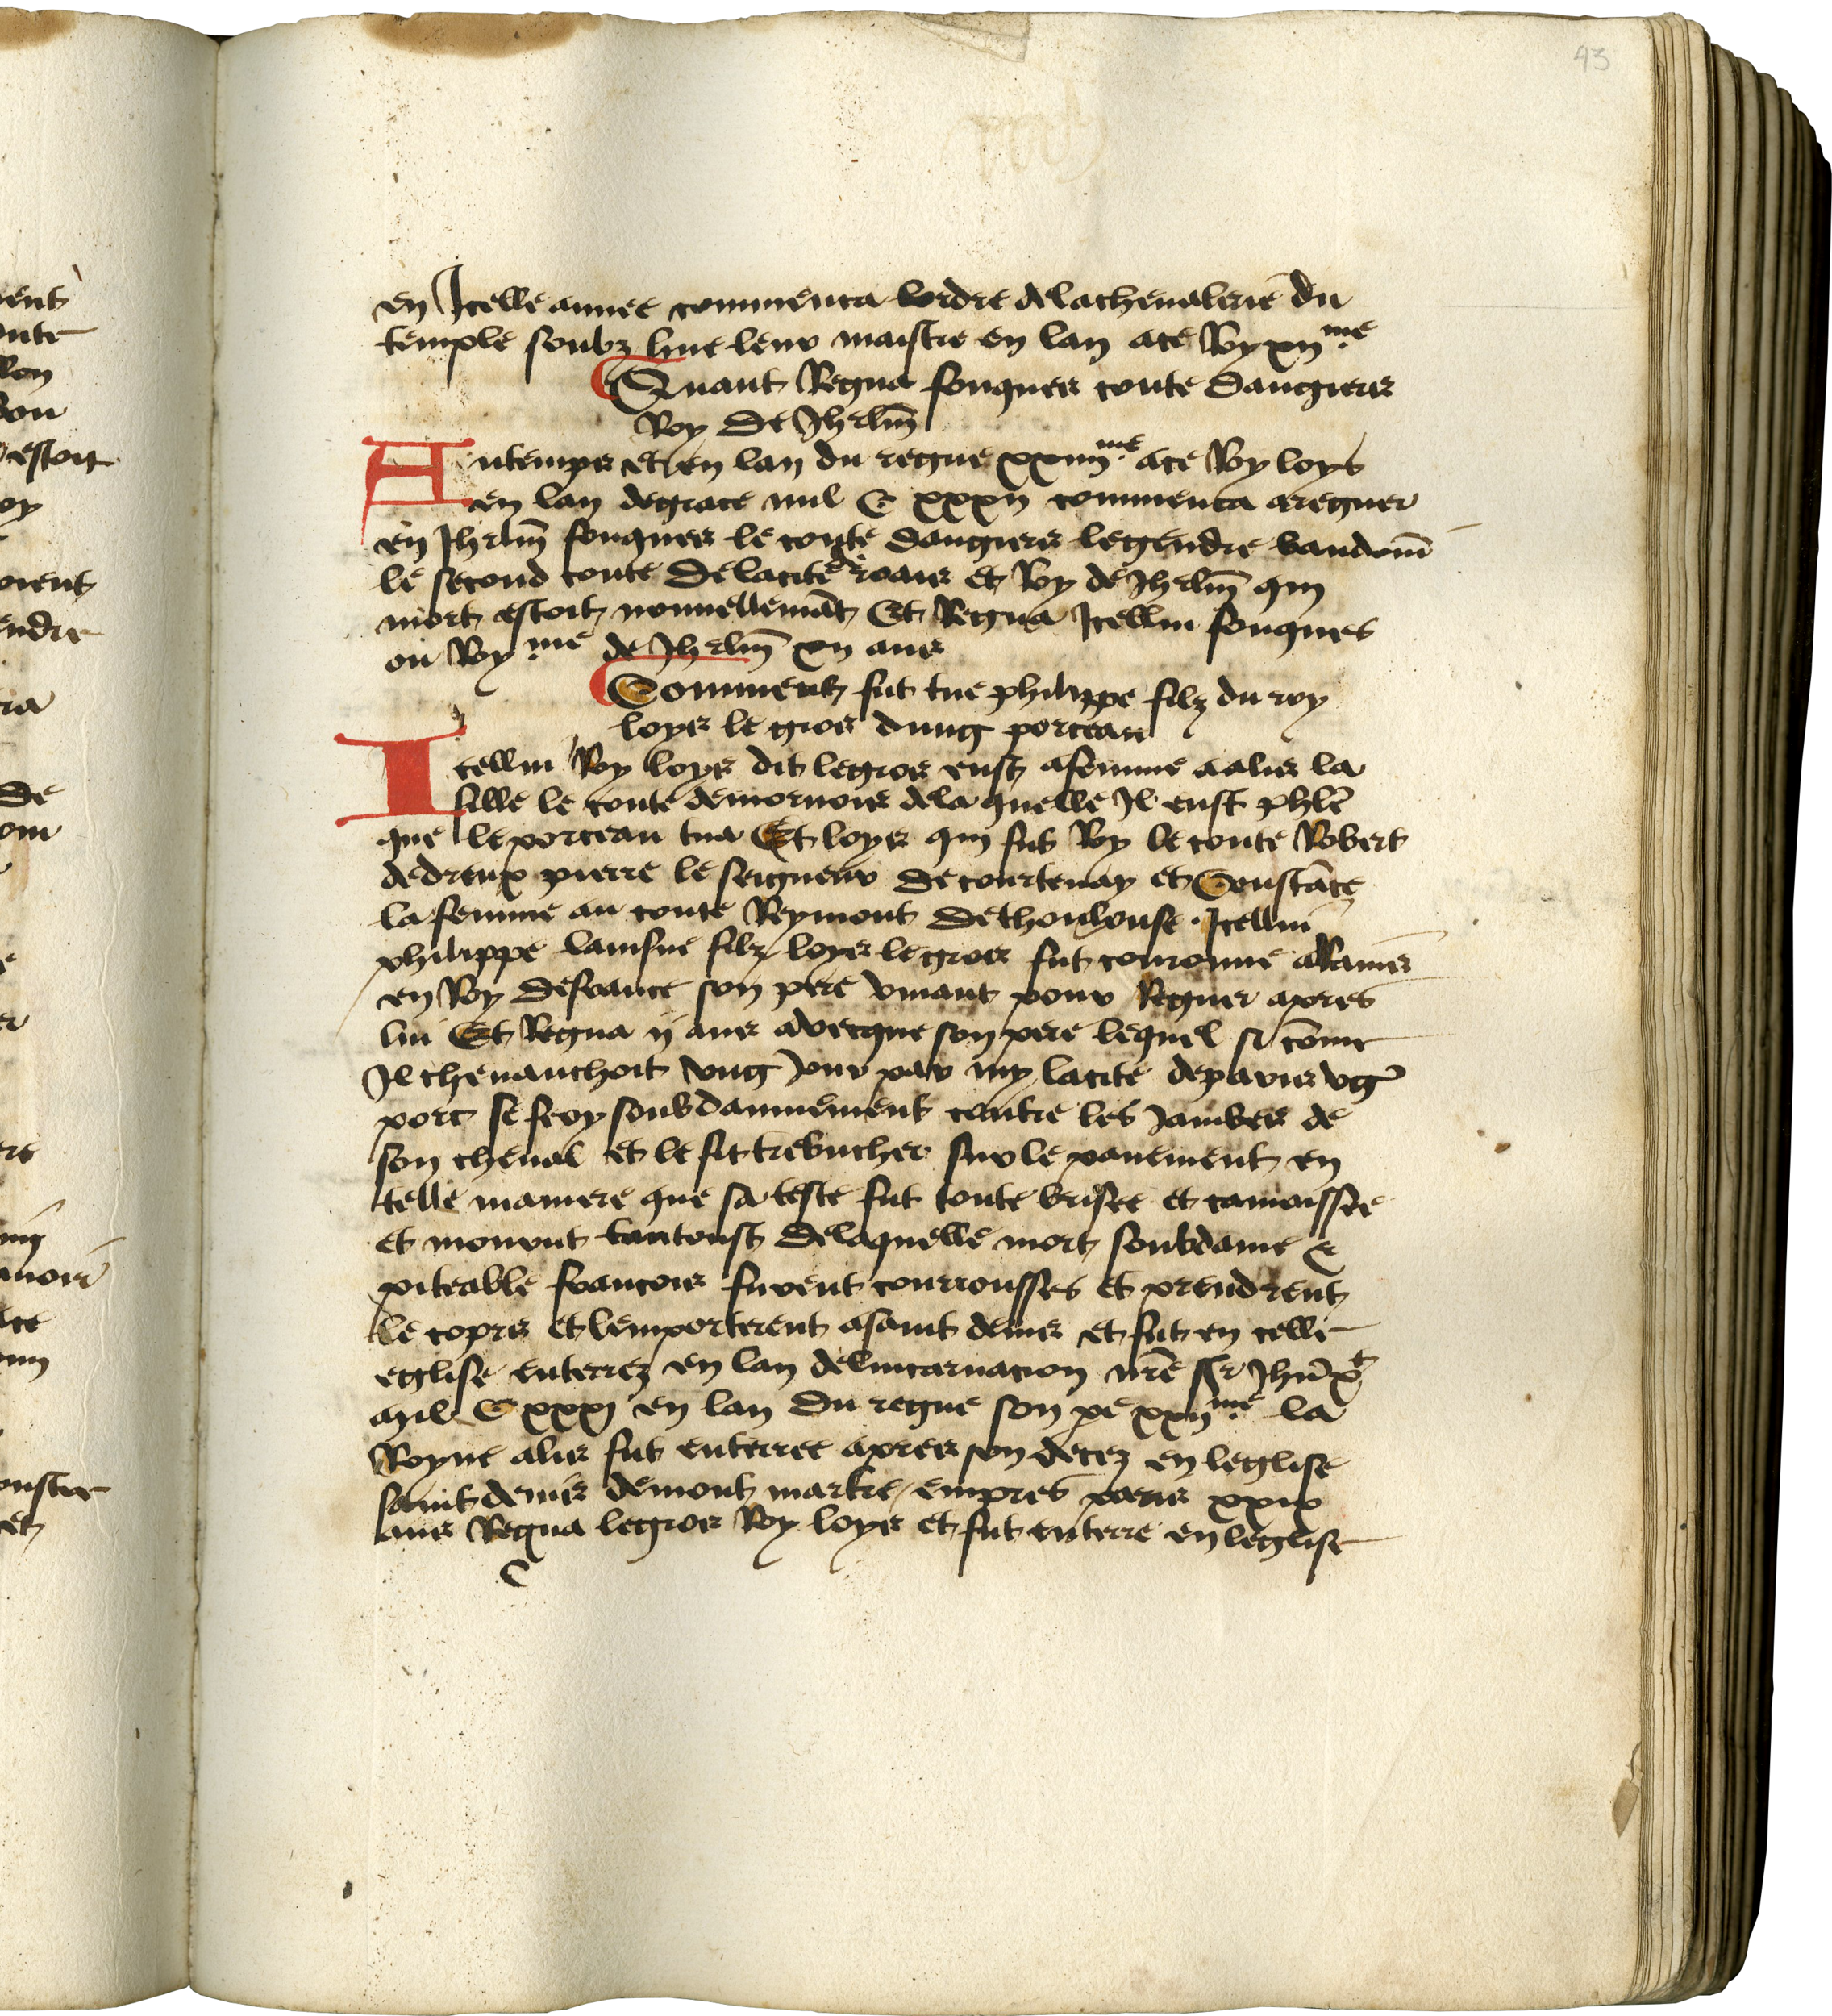 43
en Icelle annee commenca lordre de la cheualerie du
temple soubz hue leur maistre en lan a ce Roy xii.me
Quant Regna fouques conte dangiers
Roy de Jhrlm̄
Au temps et en lan du regne xxiiii.me a ce Roy loys
en lan de grace mil C xxxii commenca a regner
en Jhrlm̄ fouques le conte dangiers le gendre baudoin̄
le second conte de la cite de roais et Roy de Jhrlm̄ qui
mort estoit nouuellemāt Et Regna Icellui fouques
ou Roy.me de Jhrlm̄ xii ans
Comment fut tue philippe filz du roy
loys le gros dung porceau
Icellui Roy loys dit le gros eust a femme aalis la
fille le conte de mornois de la quelle Il eust phle
que le porceau tua Et loys qui fut Roy le conte Robert
de dreux pierre le seigneur de courtenay et Constāce
la femme au conte Reymont de thoulouse. Icellui
philippe lainsne filz loys le gros fut couronne a Rains
en Roy de france son pere viuant pour Regner apres
lui Et Regna ij ans avecque son pere lequel si cōme
Il cheuauchoit vng Jour par my la cite de paris vg
porc se fery soubdainnement contre les Jambes de
son cheual et le fit trebucher sur le pauement en
telle maniere que sa teste fut toute brisee et camoissee
et mourut tantoust de laquelle mort soubdaine &
piteable francois furent courrousses et prendrent
le corps et lemporterent a saint denis et fut en celle
eglise enterrez en lan de lincarnacion nr̄e sr Jhū xt
mil C xxxj en lan du regne son pe xxii.me la
Royne alis fut enterree apres son decez en leglise
saint denis de mont martre empres paris xxix
ans Regna le gros Roy loys et fut enterre en leglise